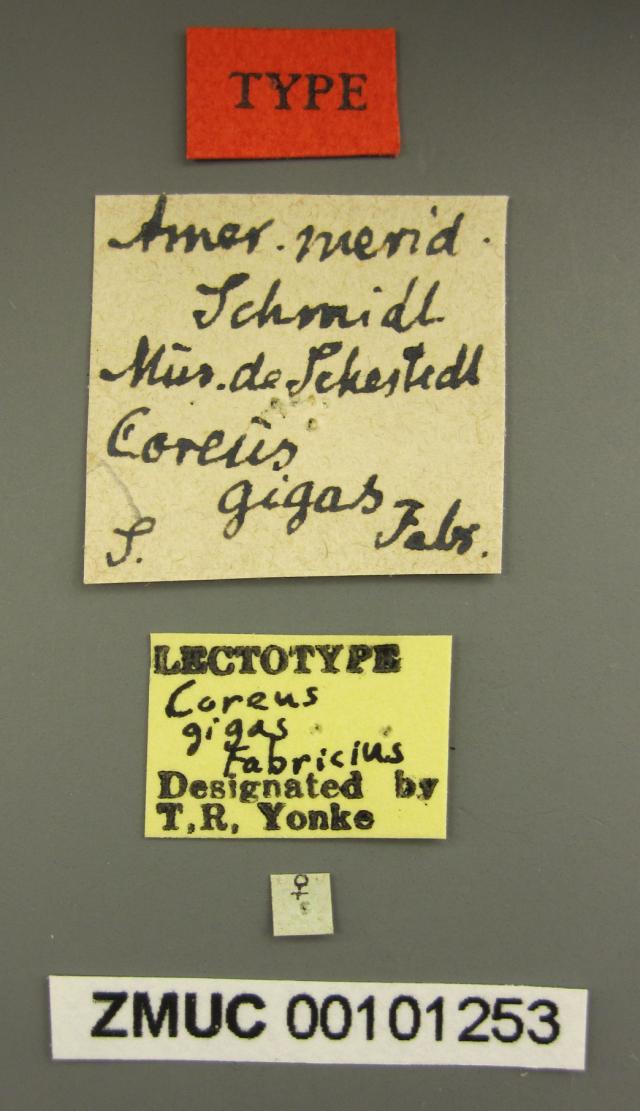 TYPE
Amer. merid.
Schmidt
Mus. de Sehestedt
Coreus
gigas
Fabr.
S.
LECTOTYPE
Coreus
gigas
Fabricius
Designated by
T,R, Yonke
♀
ZMUC 00101253